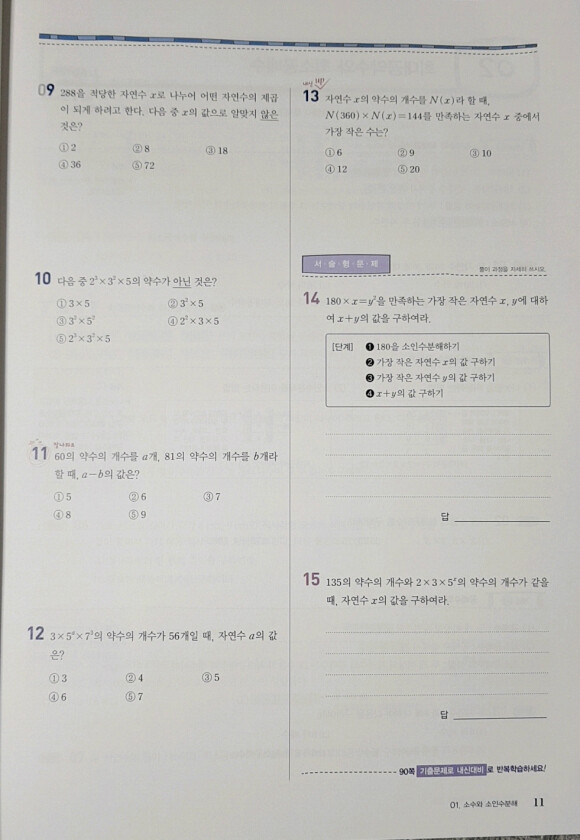 09 288을 적당한 자연수 x로 나누어 어떤 자연수의 제곱
이 되게 하려고 한다. 다음 중 x의 값으로 알맞지 않은
것은?
① 2 ② 8 ③ 18
④ 36 ⑤ 72
10 다음 중 2³×3²×5의 약수가 아닌 것은?
① 3×5 ② 3²×5
③ 3²×5² ④ 2²×3×5
⑤ 2³×3²×5
11 60의 약수의 개수를 a개, 81의 약수의 개수를 b개라
할 때, a-b의 값은?
① 5 ② 6 ③ 7
④ 8 ⑤ 9
12 의 약수의 개수가 56개일 때, 자연수 a의 값
은?
① 3 ② 4 ③ 5
④ 6 ⑤ 7
13 자연수 x의 약수의 개수를 N(x)라 할 때,
N(360)×N(x)=144를 만족하는 자연수 x 중에서
가장 작은 수는?
① 6 ② 9 ③ 10
④ 12 ⑤ 20
서·술·형·문·제
풀이 과정을 자세히 쓰시오.
14 180×x=y²을 만족하는 가장 작은 자연수 x, y에 대하
여 x+y의 값을 구하여라.
[단계] ❶ 180을 소인수분해하기
❷ 가장 작은 자연수 x의 값 구하기
❸ 가장 작은 자연수 y의 값 구하기
❹ x+y의 값 구하기
답
15 135의 약수의 개수와 2×3×5ˣ의 약수의 개수가 같을
때, 자연수 x의 값을 구하여라.
답
90쪽 기출문제로 내신대비 로 반복학습하세요!
01. 소수와 소인수분해 11